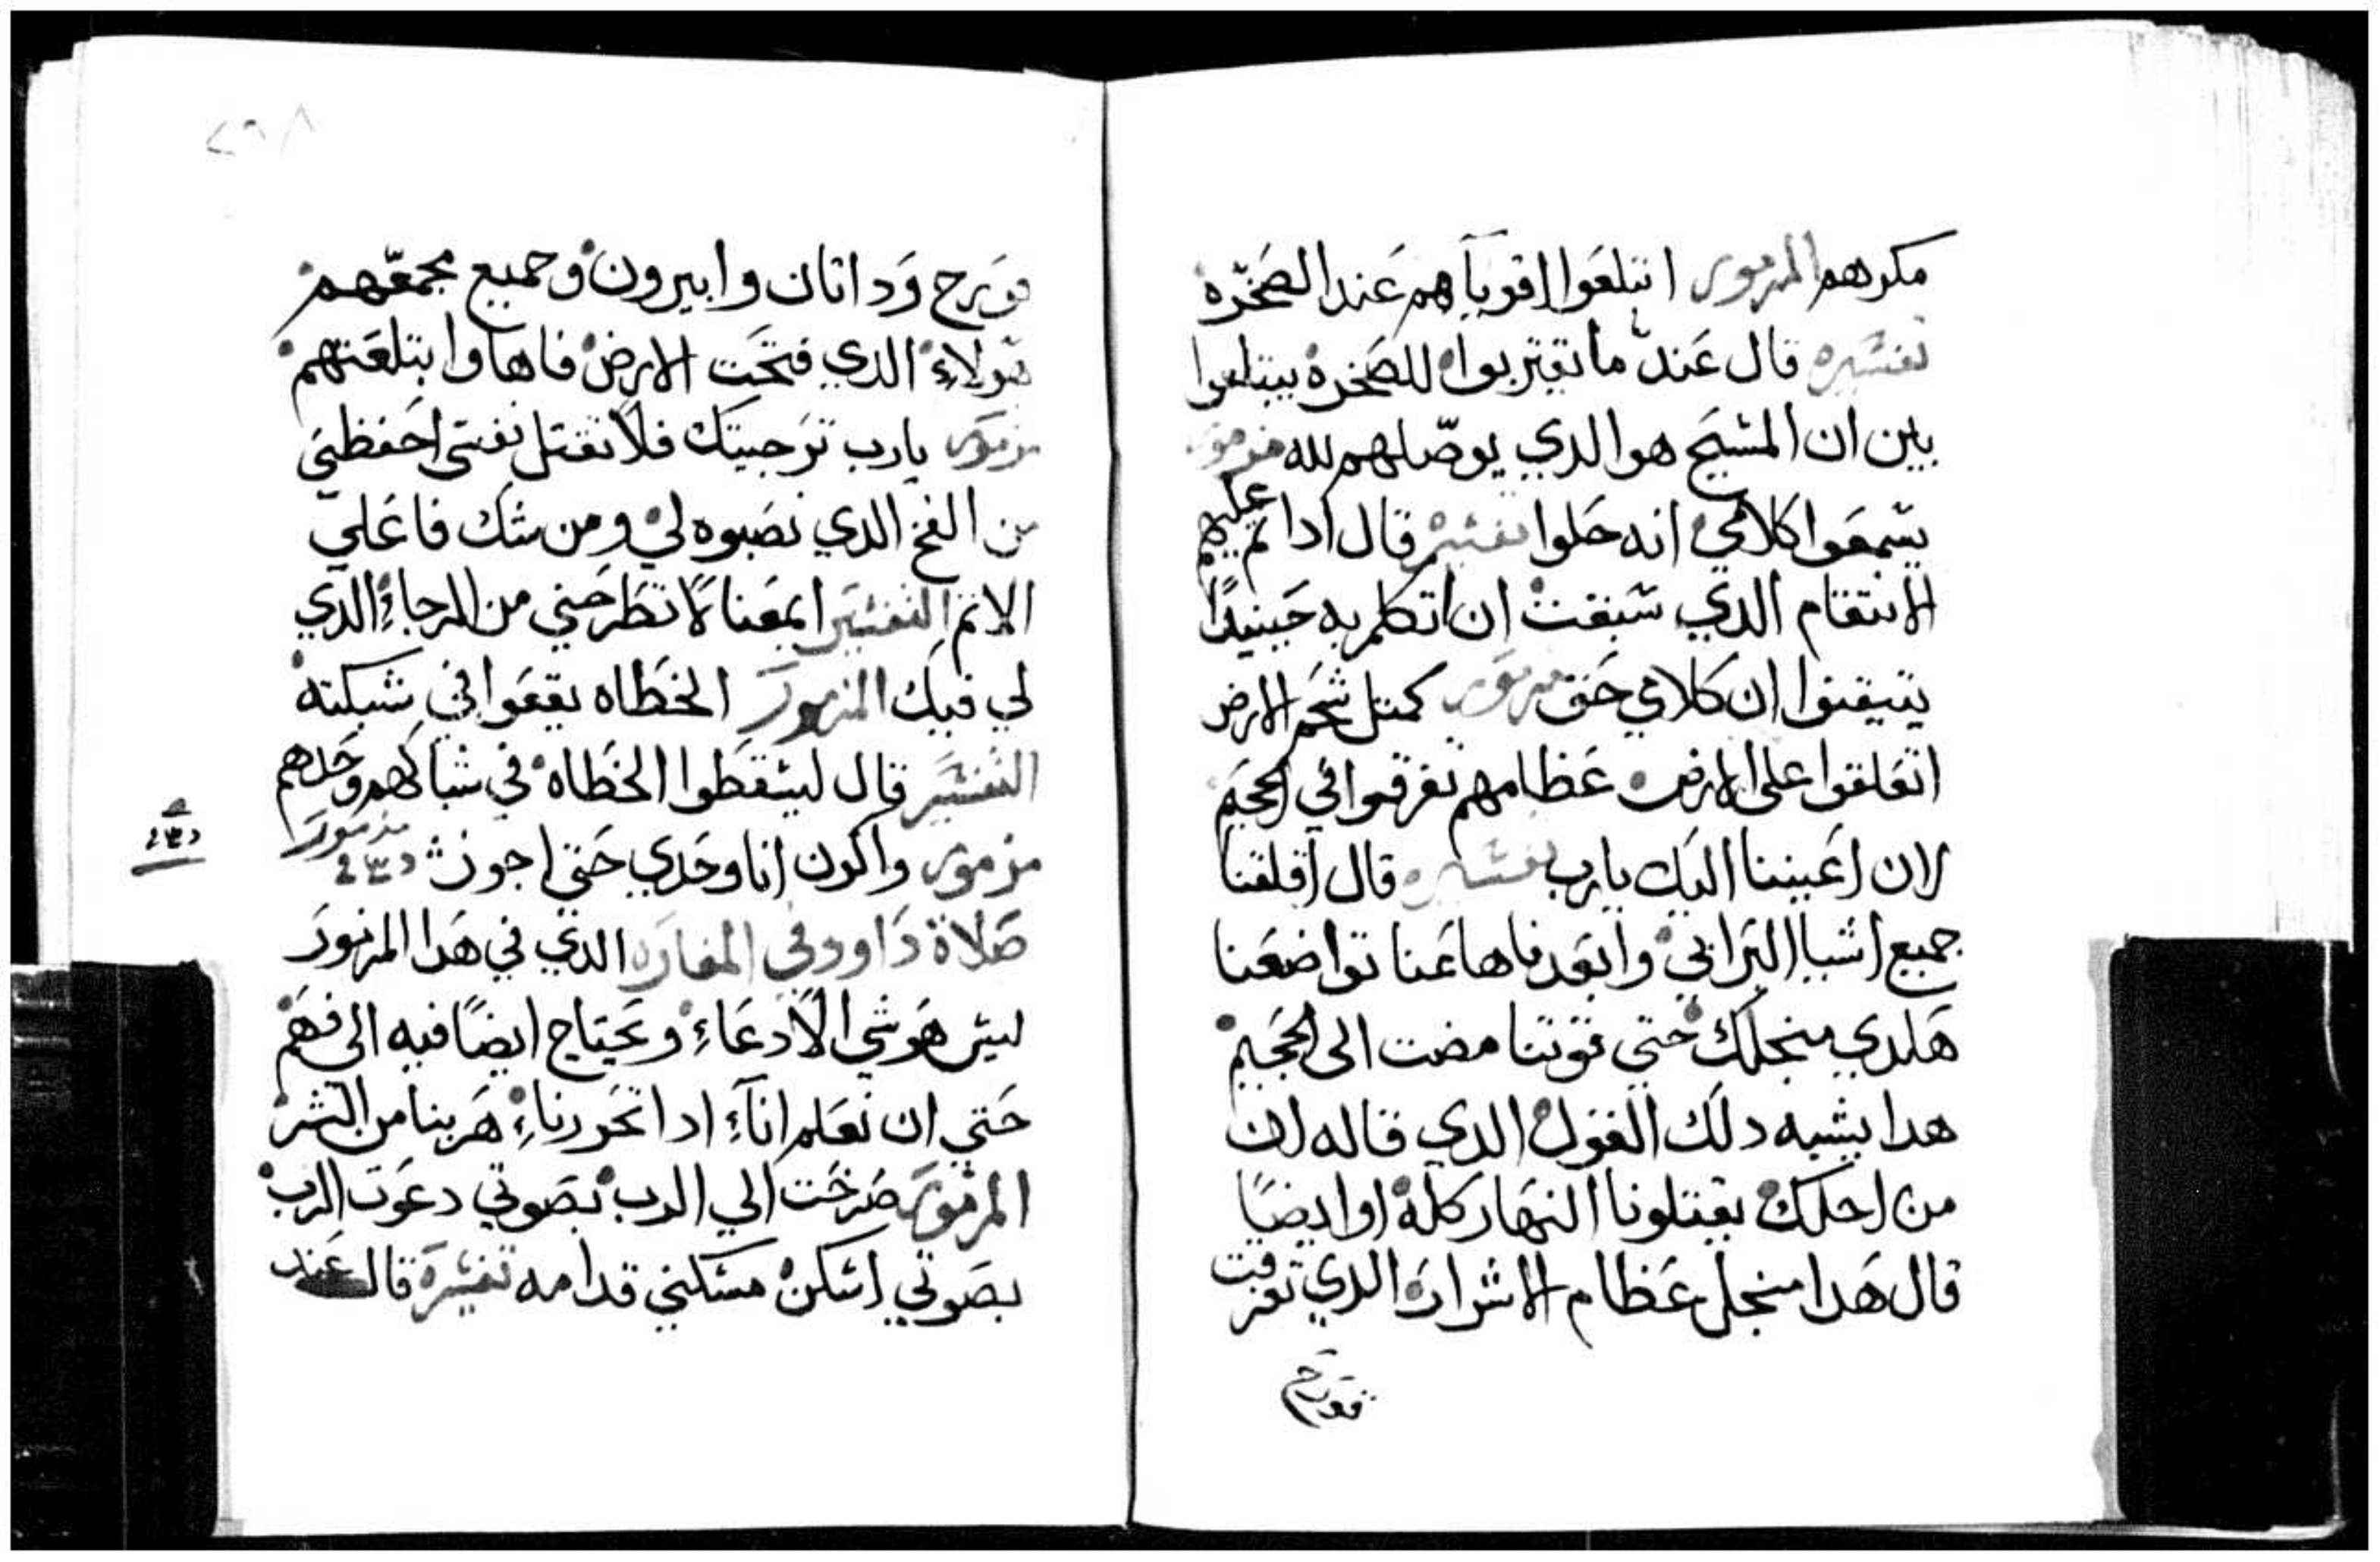 مكرهم المزمور ابتلعوا اقوياهم عند الصخره
تفسيره قال عند ما تقتربوا للصخره يبتلعوا
باين ان المسيح هو الدي يوصلهم لله مزمور
يسمعوا كلامي انه حلوا تفسير قال ادا تم عليهم
الانتقام الدي سبقت ان اتكلم به حينيدًا
يتيقنوا ان كلامي حق مزمور كمتل شحم الارض
اتفلقوا على الارض عظامهم تفرقوا في الجحيم
لان اعيننا اليك يارب تفسيره قال اقلقنا
جميع اشيا البراني وابعدناها عنا تواضعنا
هلدي منجلك حتي قوتنا مضت الى الجحيم
هدا يشبه دلك القول الدي قاله لان
من اجلك يقتلونا النهار كله او ايضًا
قال هدا منجل عظام الاشرار الدي تفرقت
قورح
٢٩٨
قورح وداتان وابيرون وجميع مجمعهم
هولاء الدي فتحت الارض فاها وابتلعتهم
مزمور يارب ترجيتك فلا تقتل نفسي احفظني
من الفخ الدي نصبوه لي ومن شك فاعلي
الاتم التفسير ابمعنا لا تطرحني من الرجاء الدي
لي فيك المزمور الخطاه يقعوا في شبكته
التفسير قال ليسقطوا الخطاه في شباكهم وحدهم
مزمور واكون انا وحدي حتى اجوز مزمور
صلاة داوود في المغاره الدي في هدا المزمور
ليس هو شي الا دعاء ويحتاج ايضًا فيه الى فهم
حتي ان نعلم اناء ادا تحدرناء هربنا من الشر
المزمور صرخت الي الرب بصوتي دعوت الرب
بصوتي اسكن مسكني قدامه تفسيره قال عند